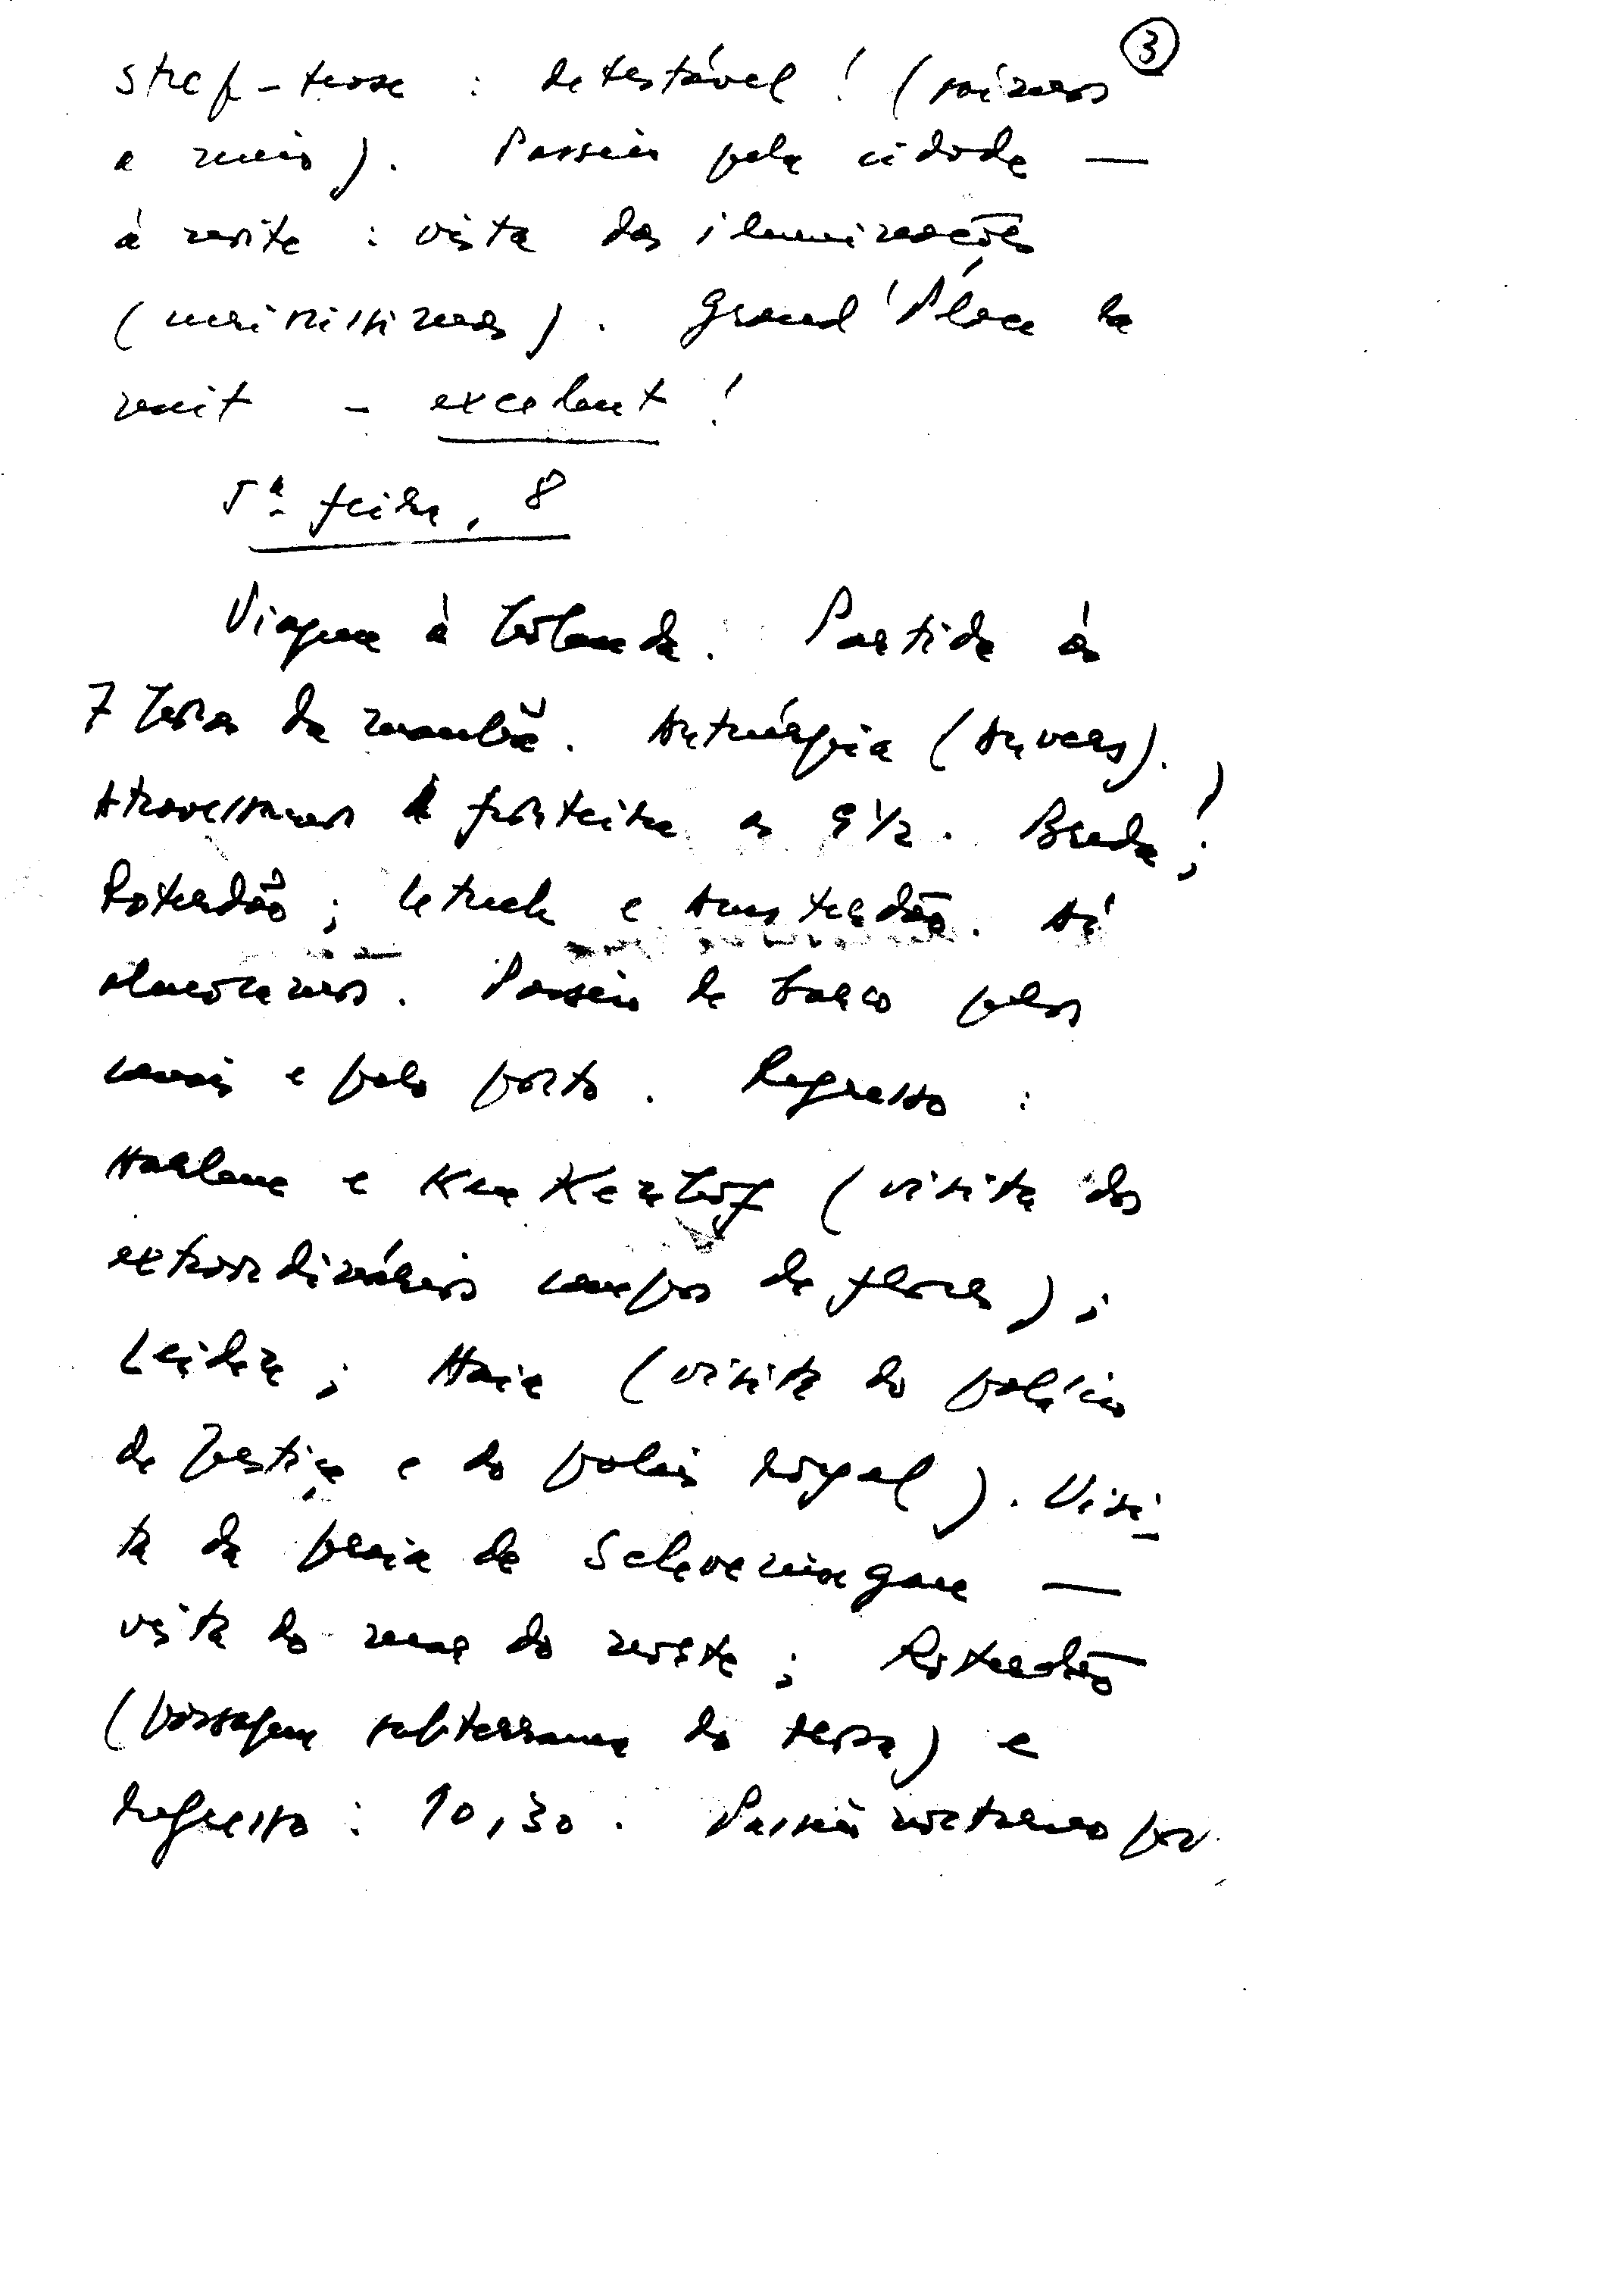 3
strep-tease : detestável ! (saímos
a meio). Passeio pela cidade —
à noite : vista das iluminações
(meiníssimas). Grand'Place la
nuit - excelent !
5ª feira, 8
Viagem à Holanda. Partida às
7 horas da manhã. Antuérpia (Anvers).
Atravessamos a fronteira às 9 1/2. Breda;
Roterdão; Utrech e Amsterdão. Aí
almoçamos. Passeio de barco pelos
canais e pelo porto. Regresso :
Harlem e KeuKenhof (visita dos
extraordinários campos de flores) ;
Leiden ; Haia (visita do palácio
de Justiça e do palais royal). Visi-
ta da praia de Scheveningen —
vista do mar do norte ; Roterdão
(passagem subterranea do Mosa) e
regresso : 10,30. Passeio nocturno por